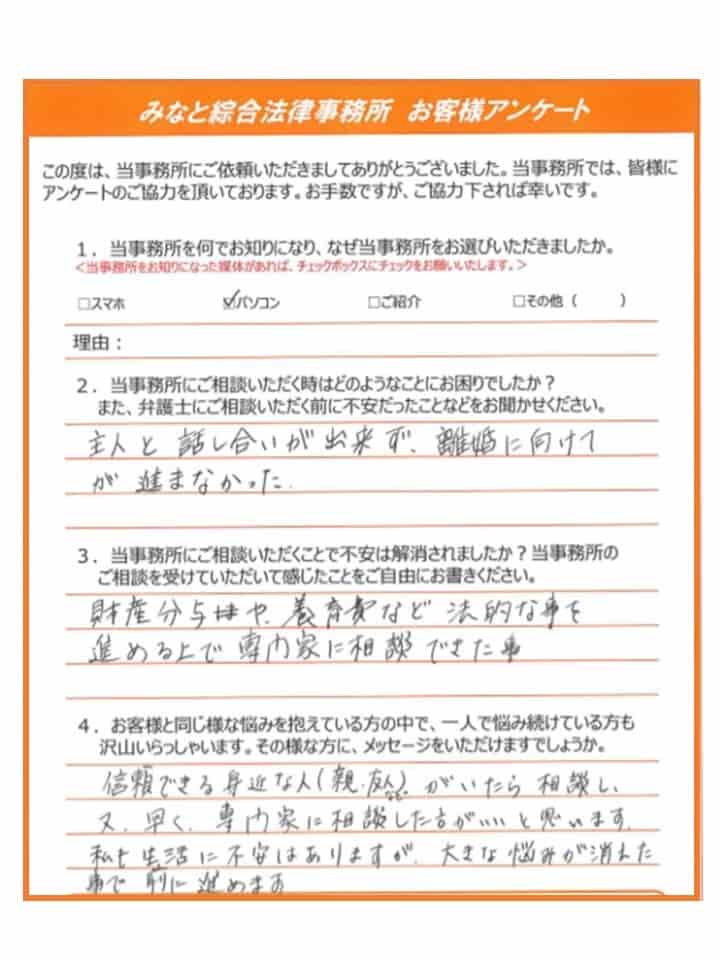 みなと綜合法律事務所 お客様アンケート
この度は、当事務所にご依頼いただきましてありがとうございました。当事務所では、皆様に
アンケートのご協力を頂いております。お手数ですが、ご協力下されば幸いです。
1．当事務所を何でお知りになり、なぜ当事務所をお選びいただきましたか。
＜当事務所をお知りになった媒体があれば、チェックボックスにチェックをお願いいたします。＞
□スマホ ☑パソコン □ご紹介 □その他（ ）
理由：
2．当事務所にご相談いただく時はどのようなことにお困りでしたか？
また、弁護士にご相談いただく前に不安だったことなどをお聞かせください。
主人と話し合いが出来ず、離婚に向けて
が進まなかった.
3．当事務所にご相談いただくことで不安は解消されましたか？当事務所の
ご相談を受けていただいて感じたことをご自由にお書きください。
財産分与や、養育費など法的な事を
進める上で専門家に相談できた事
4．お客様と同じ様な悩みを抱えている方の中で、一人で悩み続けている方も
沢山いらっしゃいます。その様な方に、メッセージをいただけますでしょうか。
信頼できる身近な人（親・友人など）がいたら相談し、
又、早く、専門家に相談した方がいいと思います.
私も生活に不安はありますが、大きな悩みが消えた
事で前に進めます